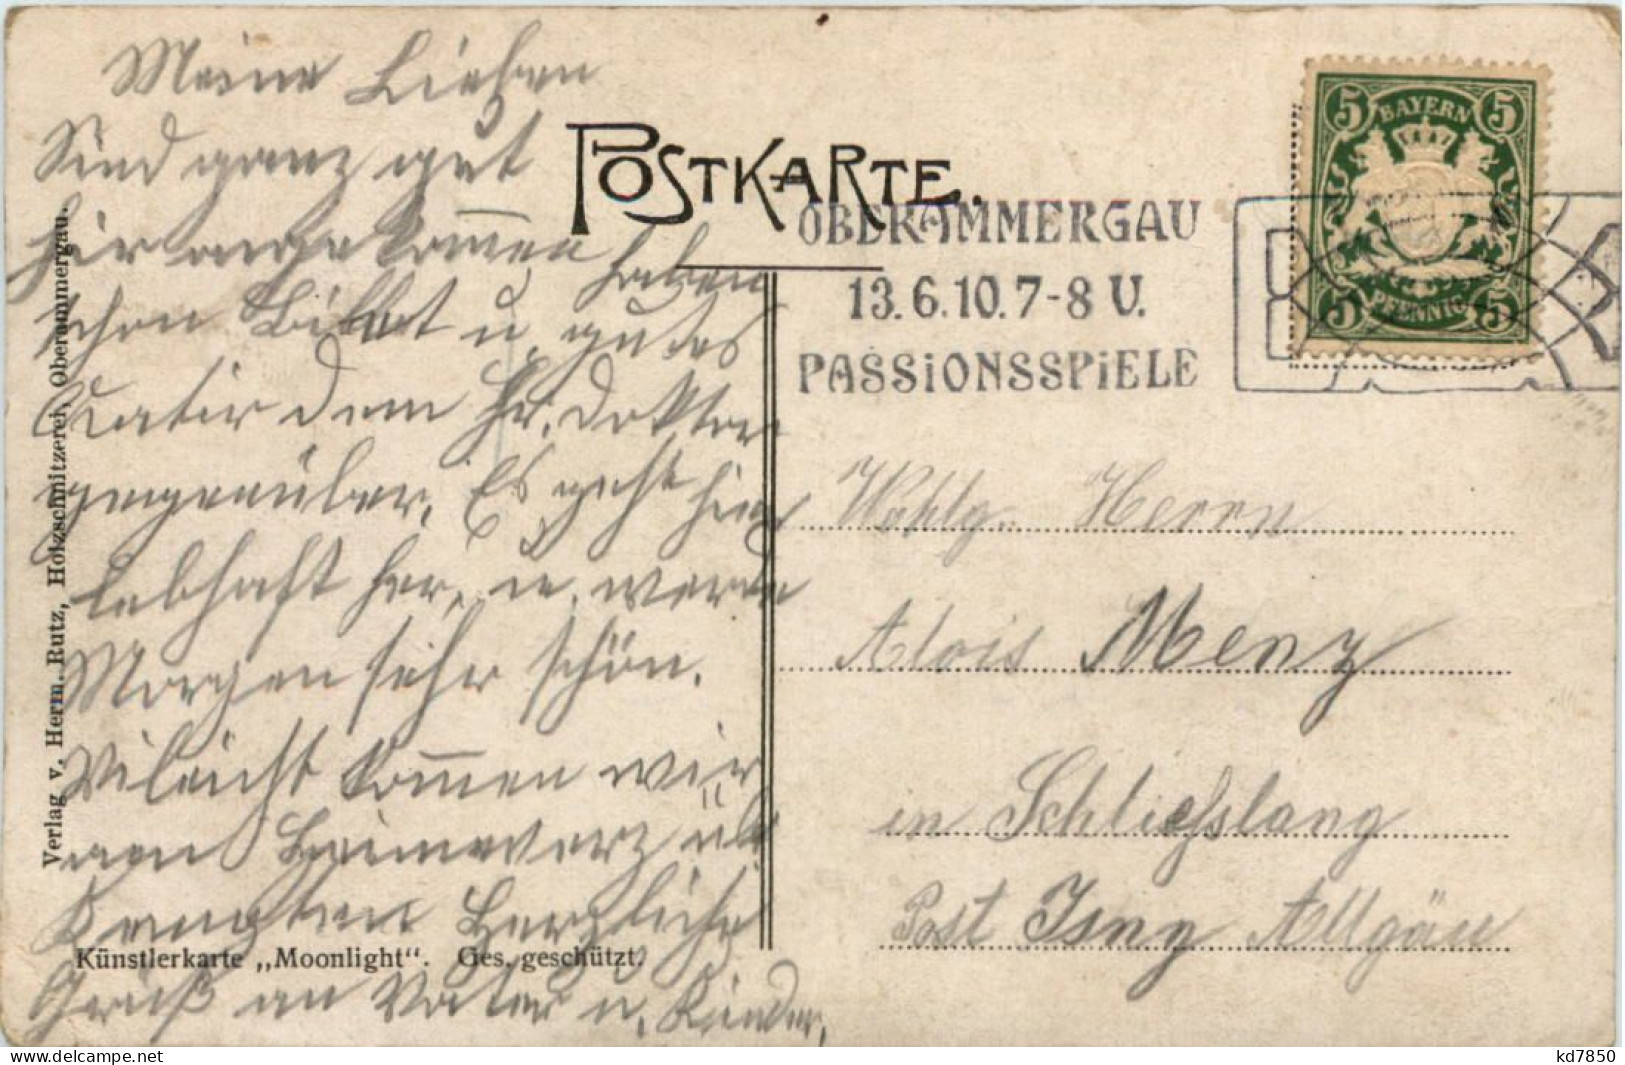 Meine Lieben
Sind ganz gut
hier angekommen haben
schon Billet u. gutes
Quatir dem Hr. Doktor
gegenüber. Es geht hier
lebhaft her, u. werde
Morgen sehr schön.
Vileicht kommen wir
von über
Herzliche
Gruß an Vater u. Kinder.
POSTKARTE.
OBERAMMERGAU
13.6.10.7-8 V.
PASSIONSSPIELE
5 BAYERN 5
5 PFENNIG 5
Wohlg. Herrn
Alois Meny
in Schließlang
Post Isny Allgäu
Verlag v. Herm. Rutz, Holzschnitzerei, Oberammergau.
Künstlerkarte „Moonlight“. Ges. geschützt.
www.delcampe.net
kd7850